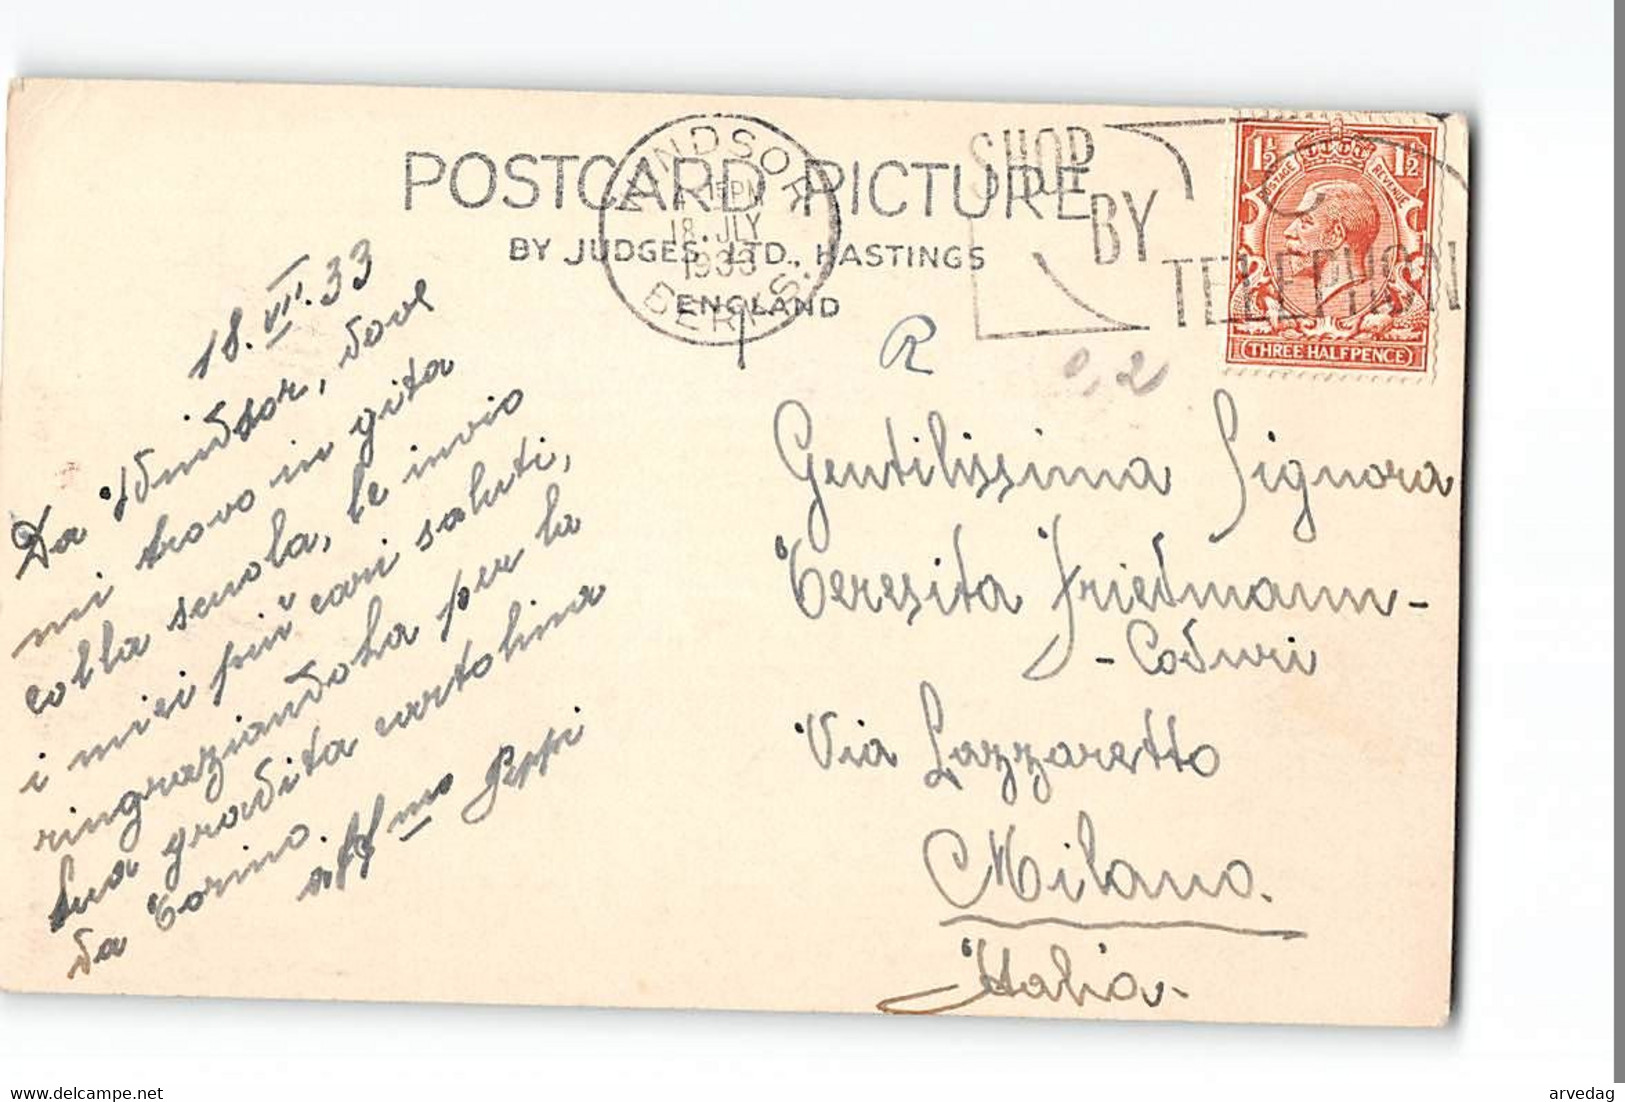 POSTCARD PICTURE
BY JUDGES, LTD., HASTINGS
ENGLAND
WINDSOR
15 PM
18. JLY
1933
BERKS.
SHOP
BY
TELEPHON
1½ 1½
POSTAGE REVENUE
THREE HALFPENCE
R
0,2
18.VII.33
Da Windsor, dove
mi trovo in gita
colla scuola, le invio
i miei più cari saluti,
ringraziandola per la
Sua gradita cartolina
da Torino.
affmo Peppi
Gentilissima Signora
Teresita Friedmann-
-Coduri
Via Lazzaretto
Milano.
Italia-
delcampe.net
arvedag